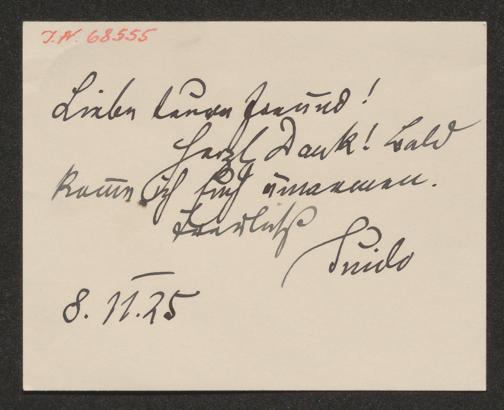 I.N. 68555
Lieber teurer Freund!
Herzl Dank! Bald
komme ich Euch umarmen.
Treulichst
Guido
8. II. 25